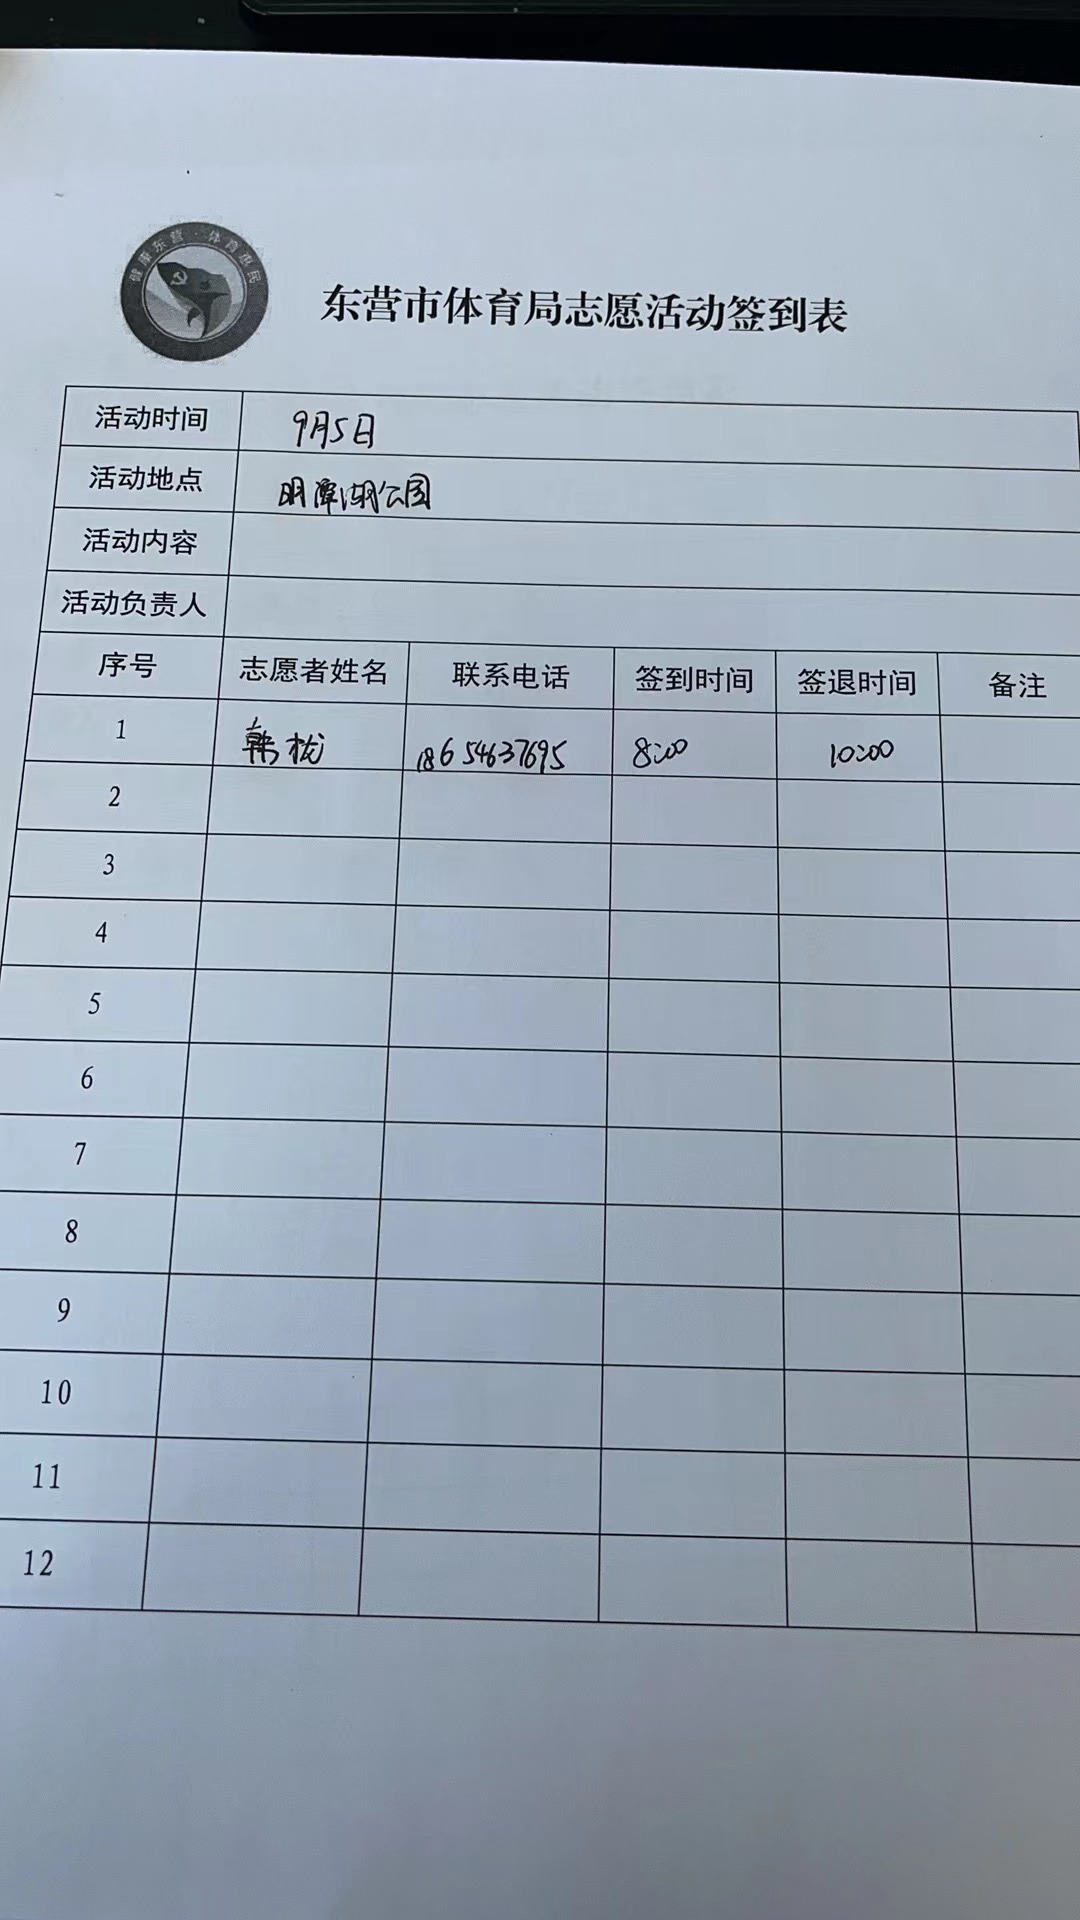 健康东营·体育惠民
东营市体育局志愿活动签到表
活动时间 9月5日
活动地点 明潭湖公园
活动内容
活动负责人
序号 志愿者姓名 联系电话 签到时间 签退时间 备注
1 韩栊 18654637695 8:00 10:00
2
3
4
5
6
7
8
9
10
11
12